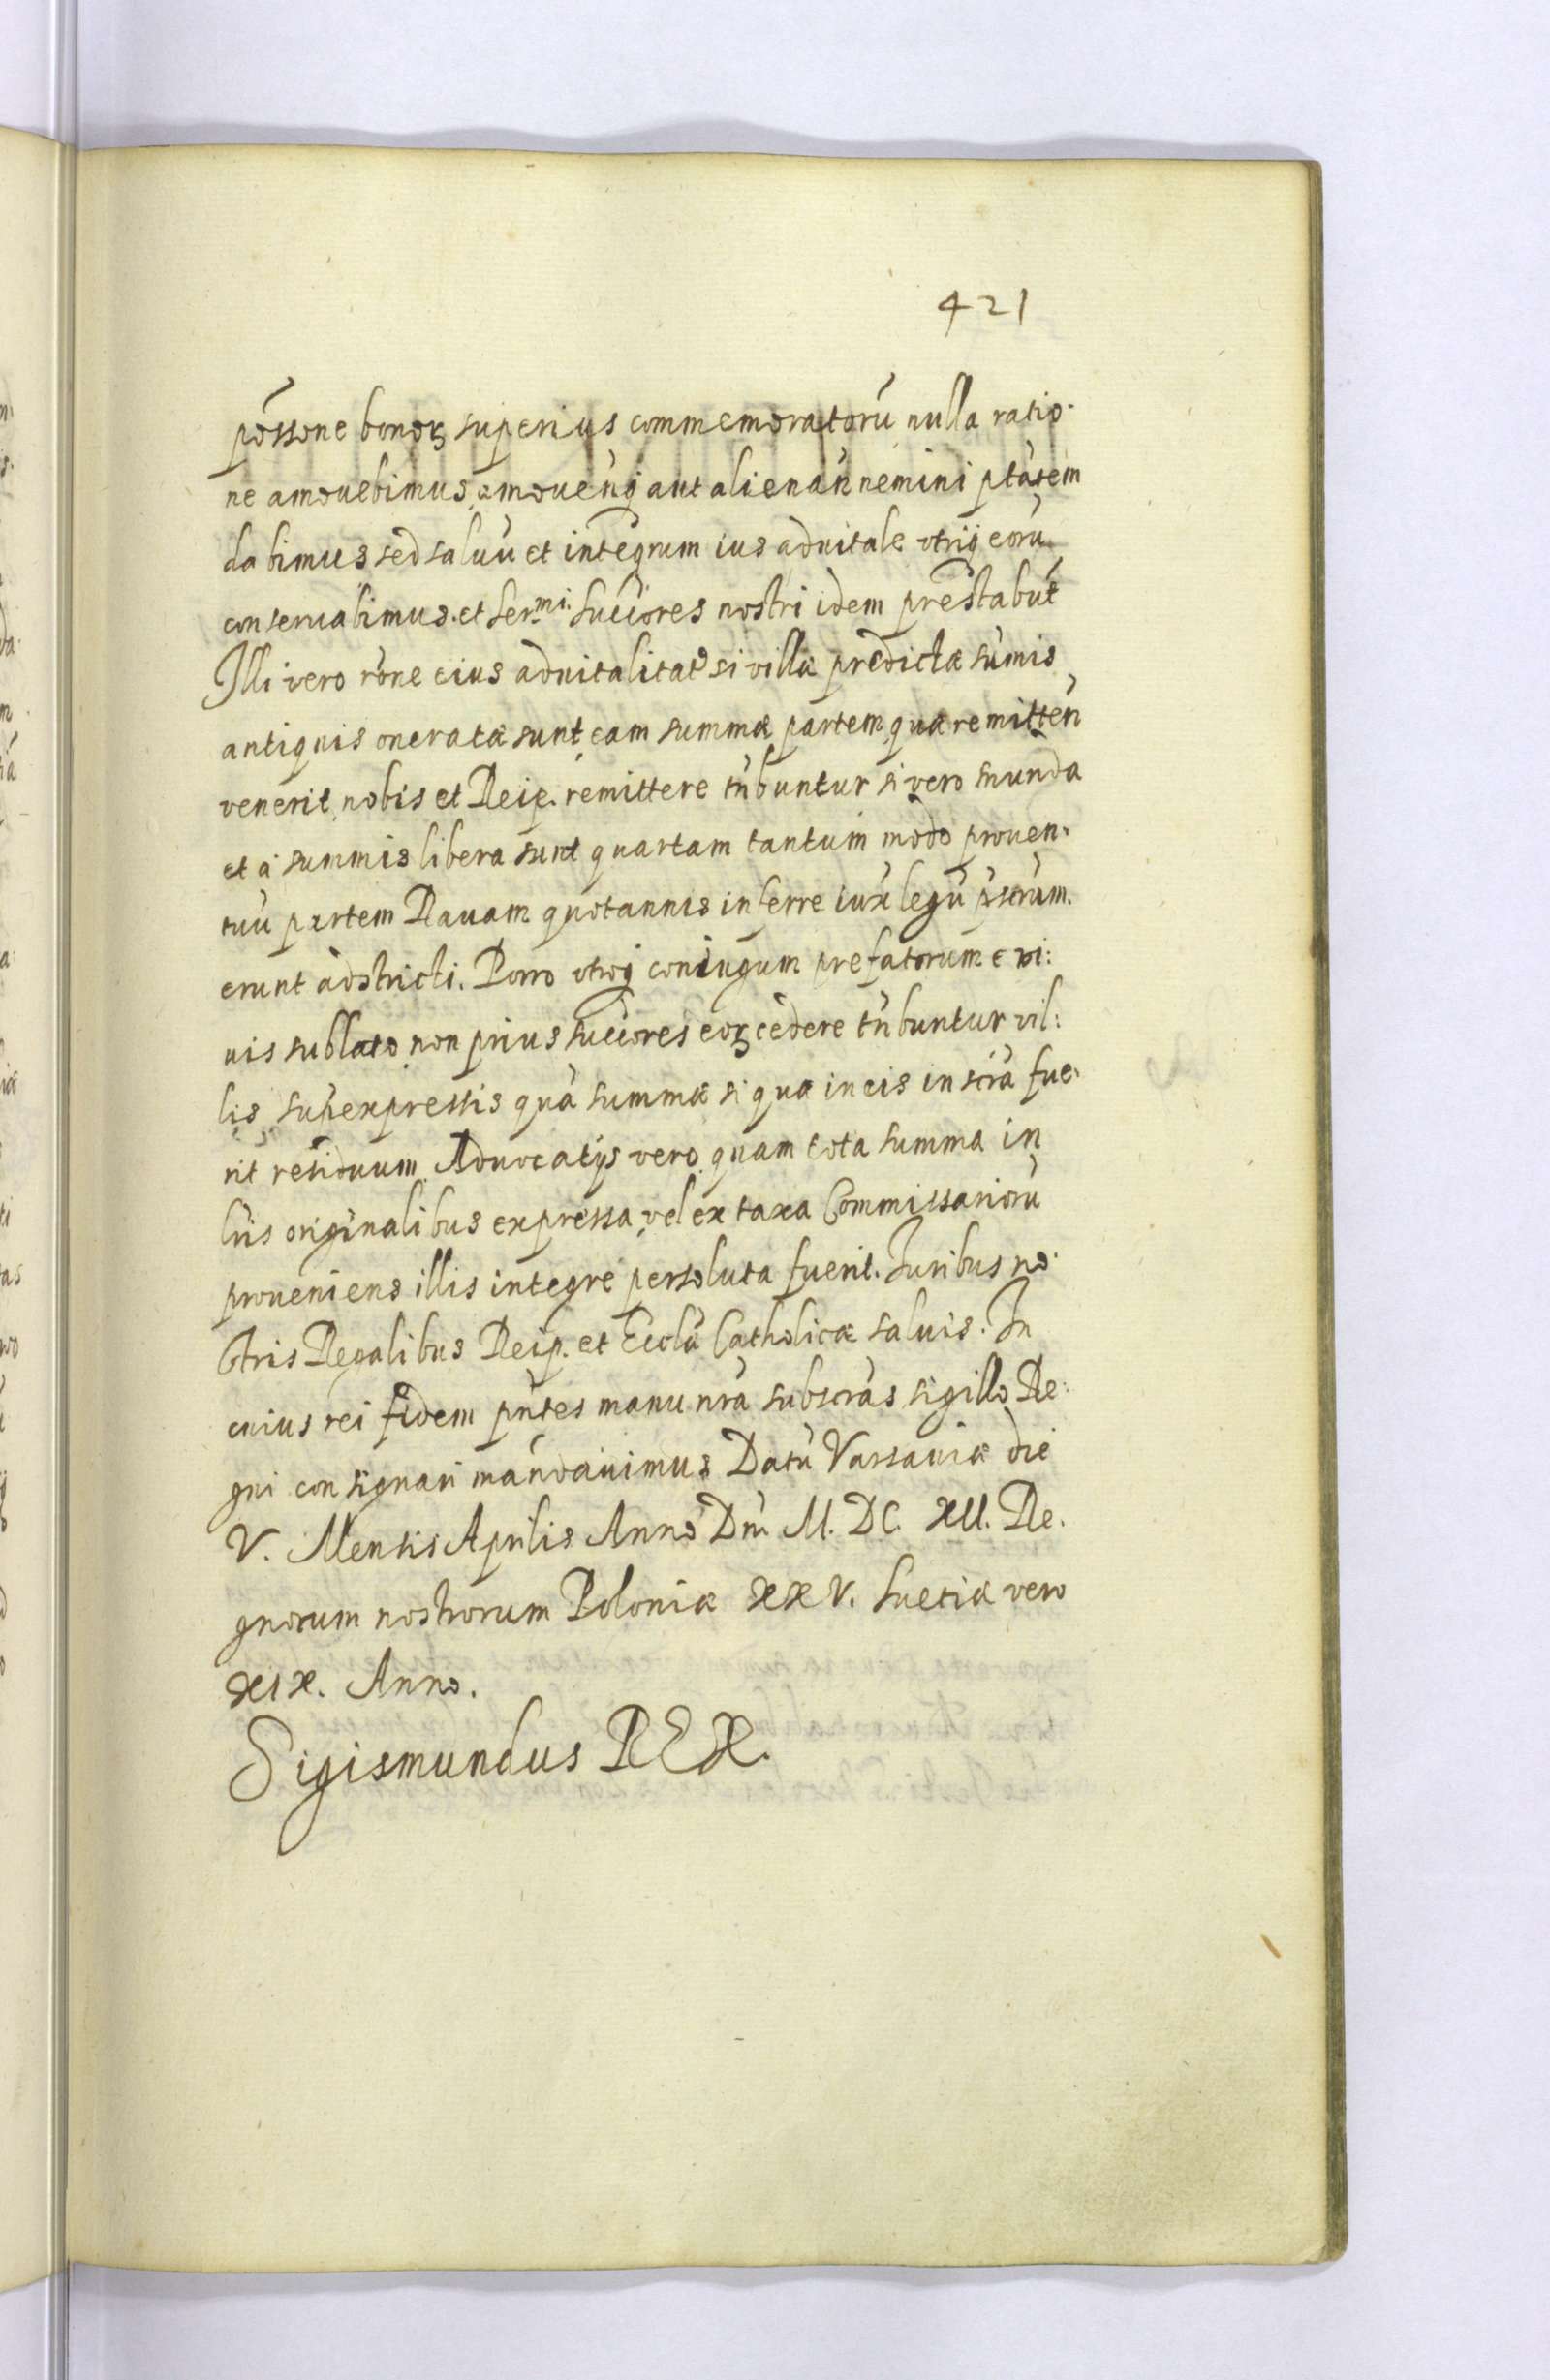 421
possone bonoꝝ superius commemoratorũ nulla ratio-
ne amouebimus, amouenq̃ aut alienañ nemini ptãtem
dabimus sed saluũ et integrum ius aduitale vtriq̃ eorũ
conseruabimus. et Ser.mi Succores nostri idem prestabũt
Illi vero rõne eius aduitalitat si villæ predictæ sũmis
antiquis oneratæ sunt, eam summæ partem quæ remitteñ
venerit nobis et Reip. remittere tñbuntur si vero munda
et à summis libera sunt quartam tantum modo prouen-
tuũ partem Rauam quotannis inferre iux legũ pscrum.
erunt adstricti. Porro vtroq̃ coniugum prefatorum e vi:
uis sublato non prius succores eoꝝ cedere tñbuntur vil:
lis, supexpressis quà summæ si qua in eis inscrà fue-
rit residuum. Aduocatijs vero quam tota summa in
lr̃is originalibus expressa, vel ex taxa Commissariorũ
proueniens illis integre persoluta fuerit. Iuribus no-
stris Regalibus Reip. et Eccl̃a Catholicæ saluis. In
cuius rei fidem pñtes manu nr̃a subscr̃as sigillo Re:
gni consignari mandauimus Datũ Varsauiæ die
V. Mensis Aprilis Anno Dni M. DC. XII. Re.
gnorum nostrorum Poloniæ XXV. Suetiæ vero
XIX. Anno.
Sigismundus REX.